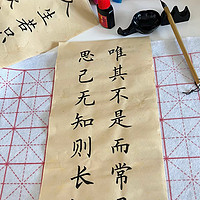 唯其不是而常
思己无知则长
人生若只